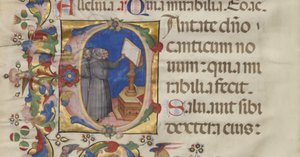 Alleluia. Quia mirabilia. Eoac
antate dño
canticum no
uum: quia mi
rabilia fecit.
Saluauit sibi
dextera eius: